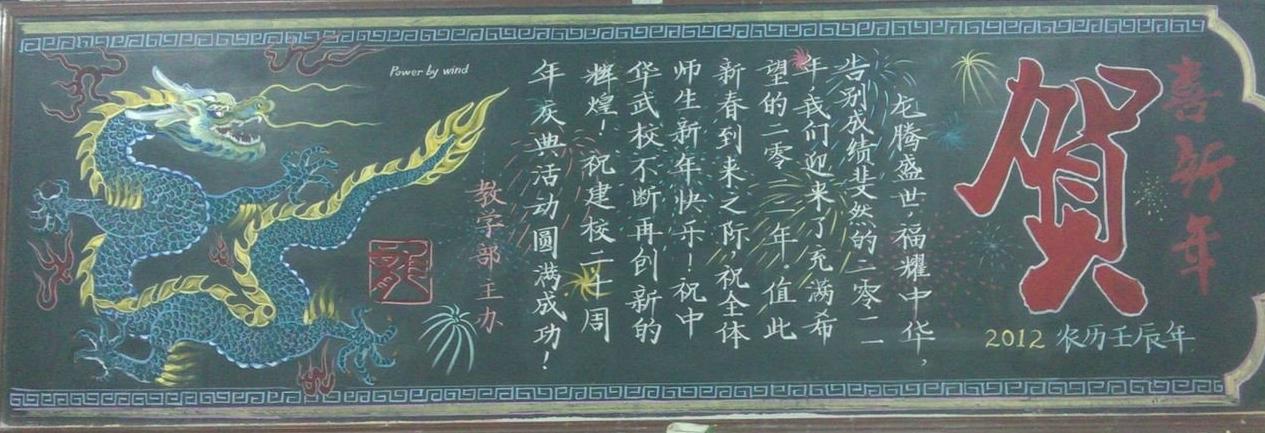 喜新年
賀
2012 农历壬辰年
龙腾盛世,福耀中华,
告别成绩斐然的二零一一
年,我们迎来了充满希
望的二零一二年。值此
新春到来之际,祝全体
师生新年快乐!祝中
华武校不断再创新的
辉煌!祝建校二十周
年庆典活动圆满成功!
教学部主办
Power by wind